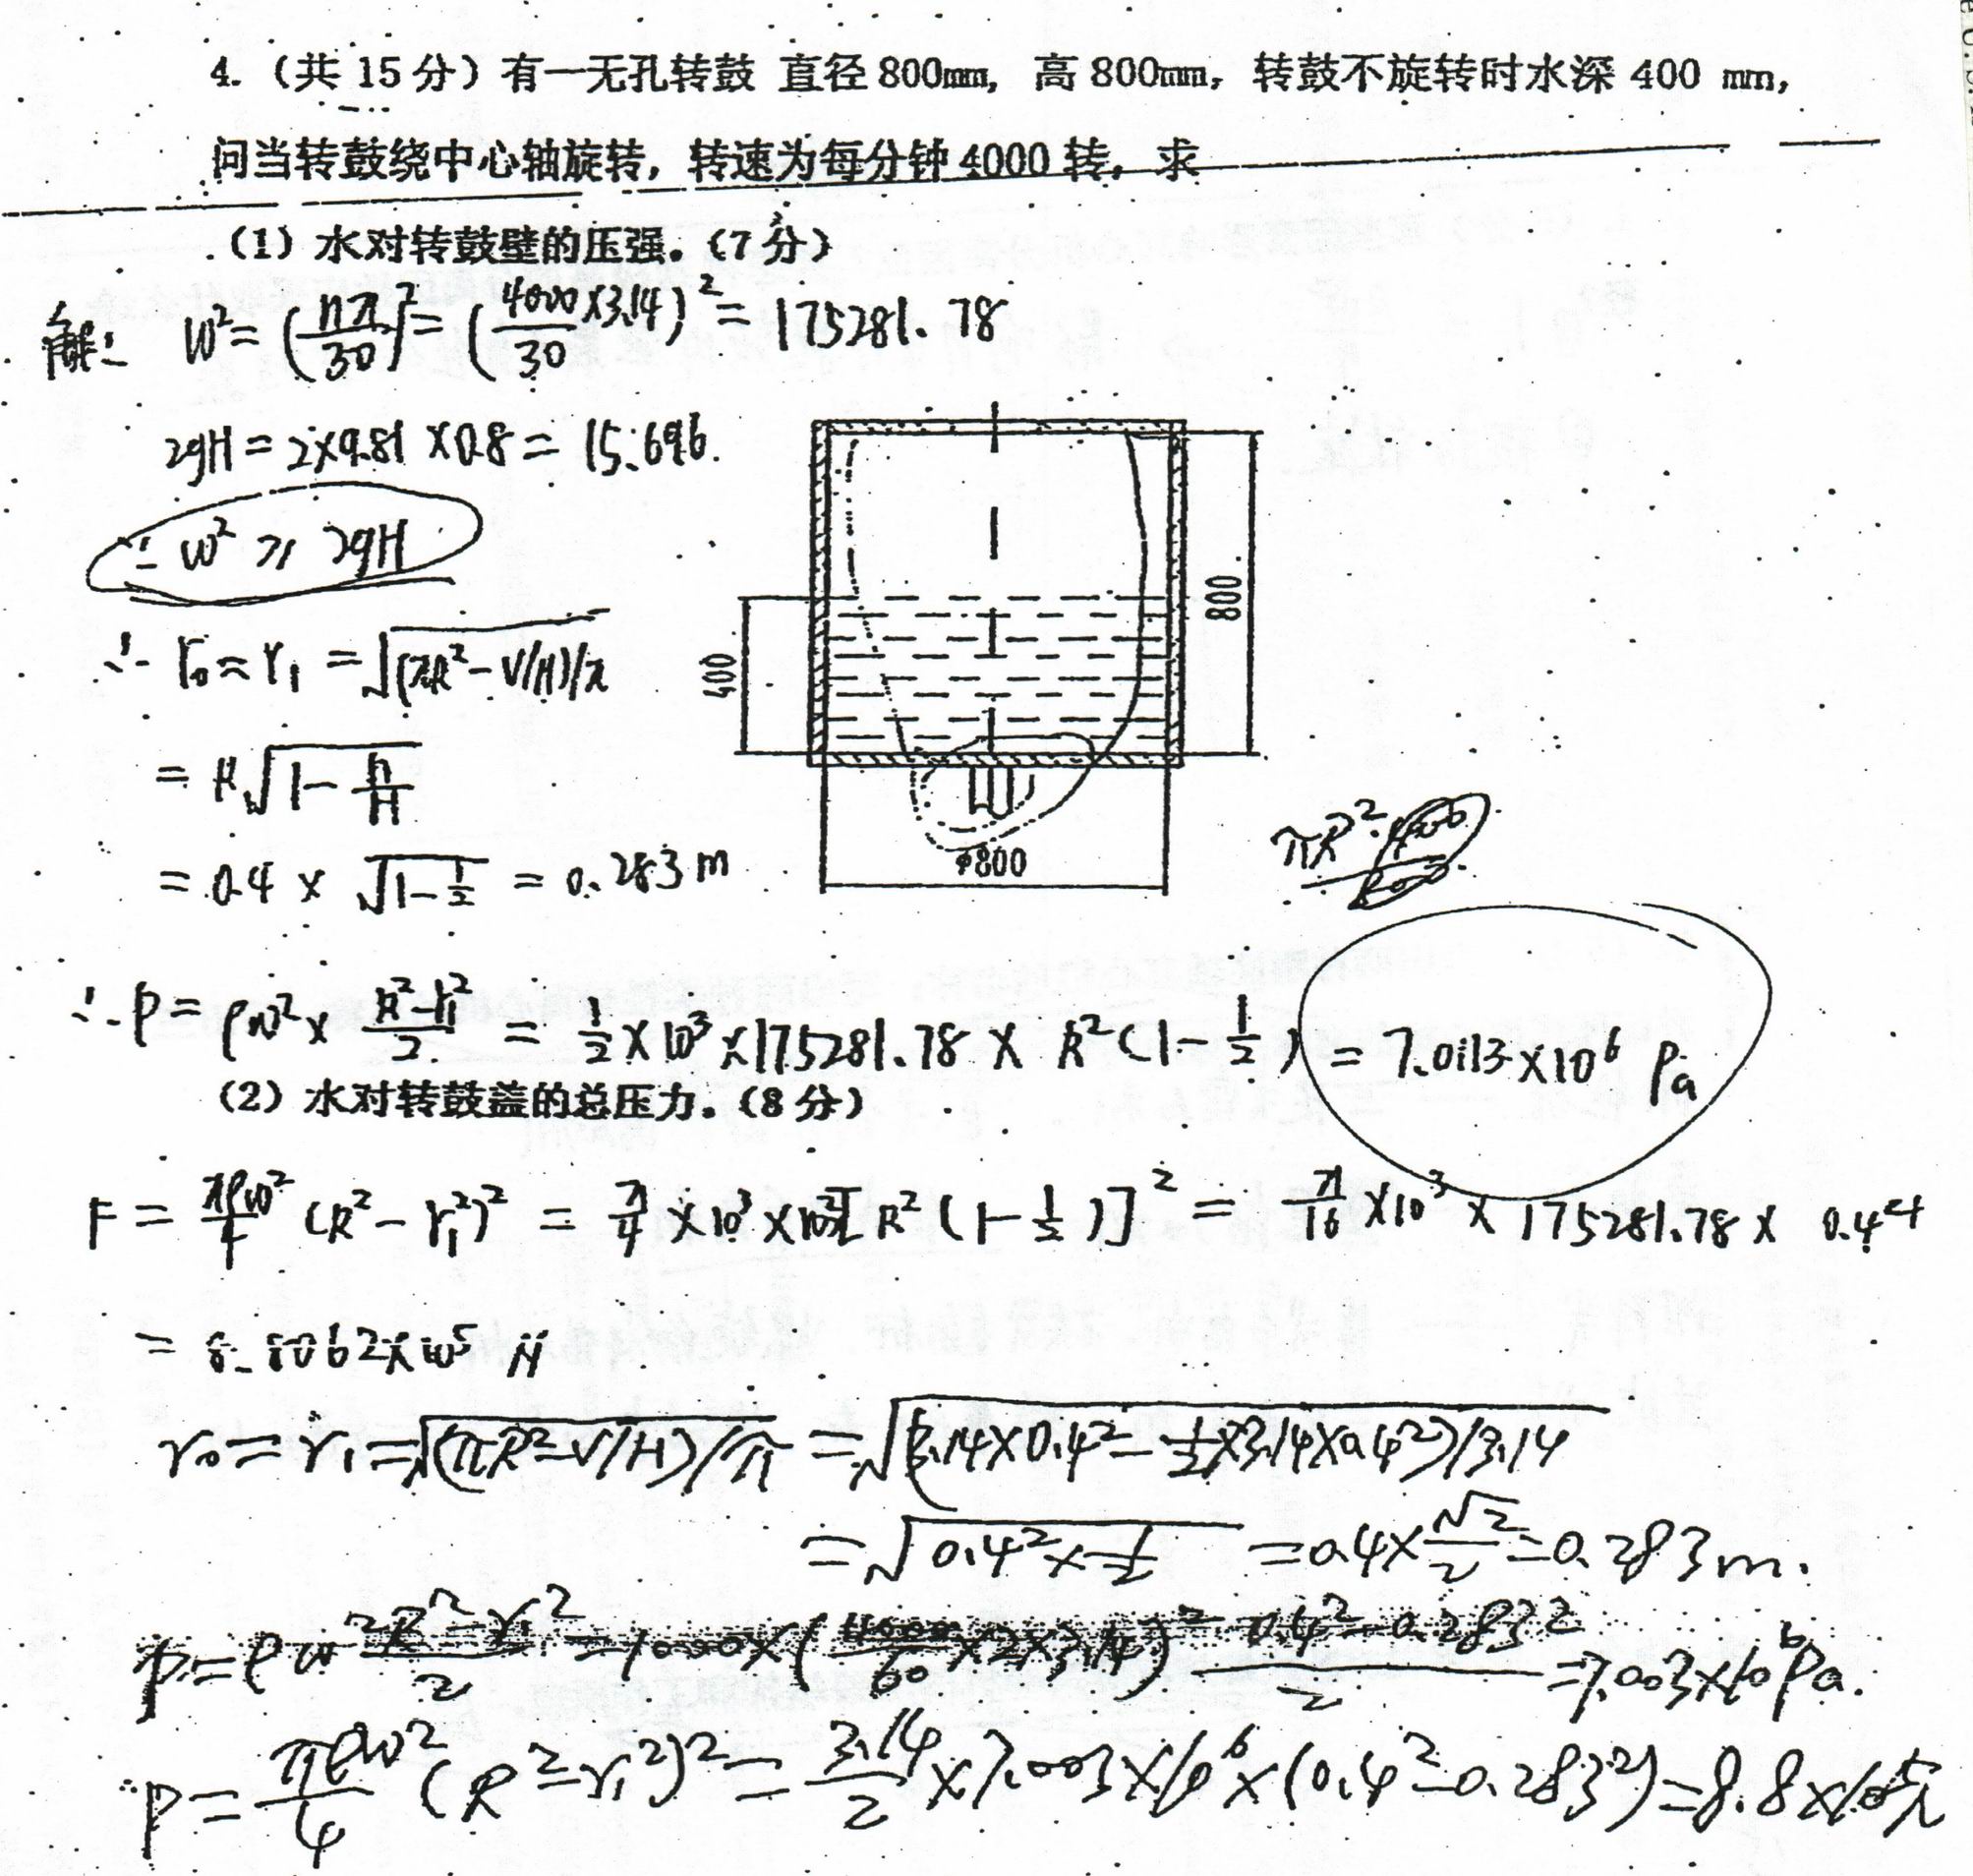 4.（共 15 分）有一无孔转鼓 直径 800mm, 高 800mm, 转鼓不旋转时水深 400 mm,
问当转鼓绕中心轴旋转, 转速为每分钟 4000 转, 求
（1）水对转鼓壁的压强。（7 分）
解: W² = (nπ/30)² = (4000×3.14/30)² = 175281.78
2gH = 2×9.81×0.8 = 15.696.
∵ w² >> 2gH
∴ r₀ ≈ r₁ = √((πR² - V/H)/π)
= R√(1 - h/H)
= 0.4 × √(1 - 1/2) = 0.283 m
400
800
φ800
πR²·400/800
∴ P = ρw² × (R² - r₁²)/2 = 1/2 × 10³ × 175281.78 × R²(1 - 1/2) = 7.0113×10⁶ Pa
（2）水对转鼓盖的总压力。（8 分）
F = πρw²/4 (R² - r₁²)² = π/4 × 10³ × w²[R²(1 - 1/2)]² = π/16 × 10³ × 175281.78 × 0.4⁴
= 8.8062×10⁵ N
r₀ = r₁ = √((πR² - V/H)/π) = √((3.14×0.4² - 1/2×3.14×0.4²)/3.14)
= √(0.4²×1/2) = 0.4×√2/2 = 0.283m.
p = ρw² (R² - r₁²)/2 = 1000×(4000/60×2×3.14)² (0.4² - 0.283²)/2 = 7.003×10⁶Pa.
∴ P = πρw²/4 (R² - r₁²)² = 3.14/2 × 7.003×10⁶×(0.4² - 0.283²) = 8.8×10⁵N